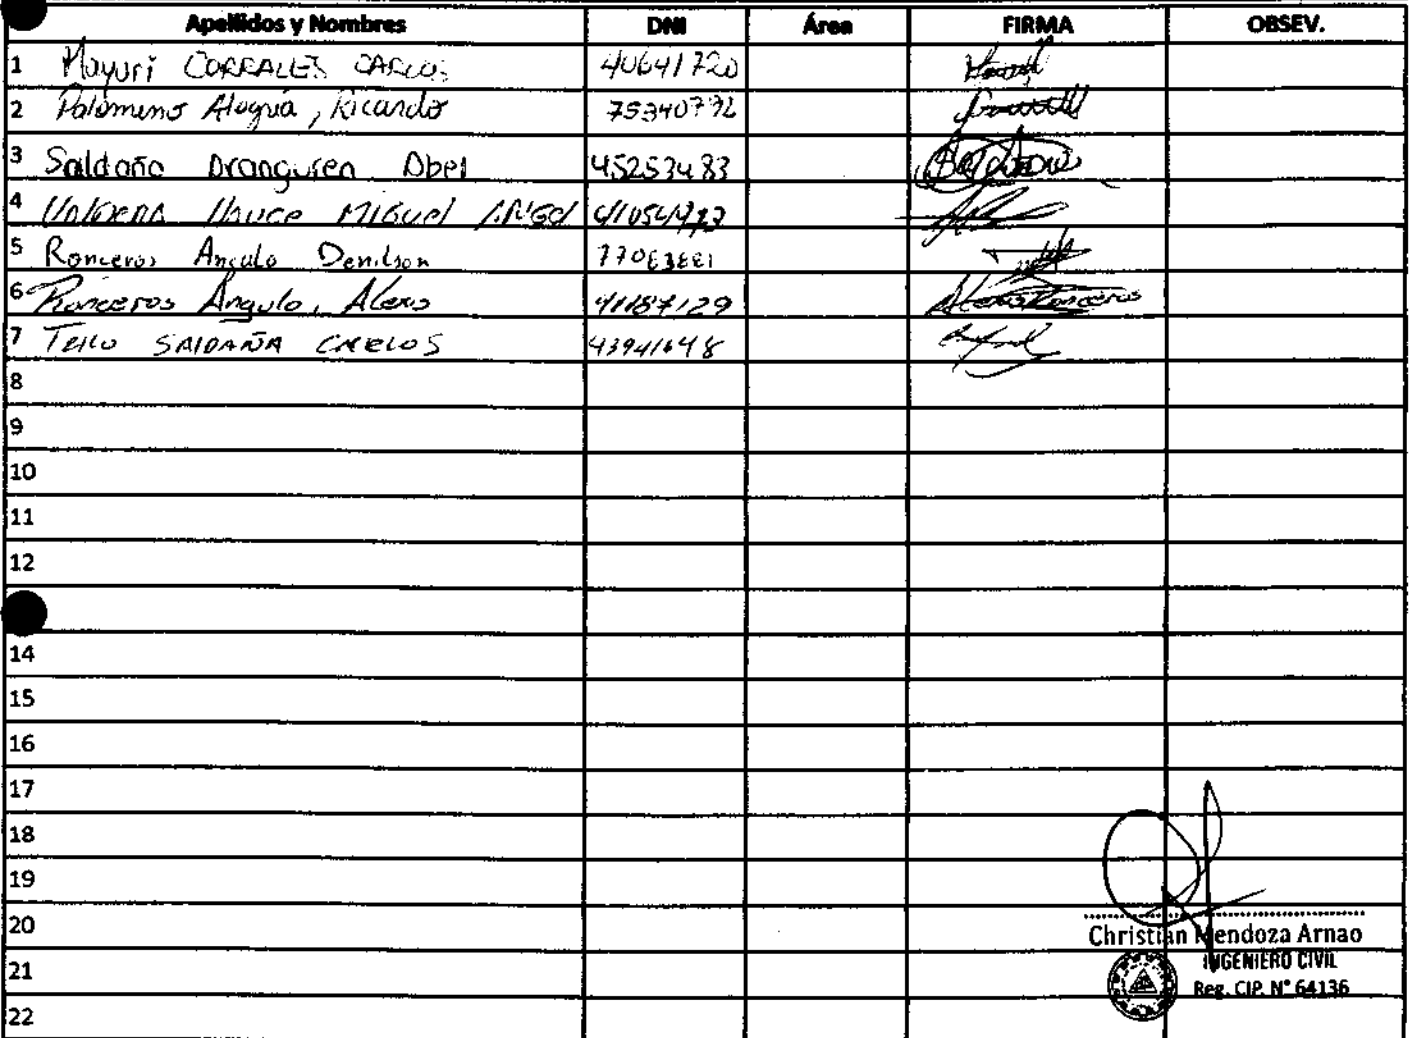 Apellidos y Nombres DNI Área FIRMA OBSEV.
1 Mayuri CORRALES CARLOS 40641720
2 Palomino Alegria, Ricardo 75340792
3 Saldaña Aranguren Abel 45253483
4 MIGUEL ANGEL
5 Ronceros Angulo Denilson
6 Ronceros Angulo, Alexis 41187129
7 Tello SALDAÑA CARLOS 43941648
8
9
10
11
12
14
15
16
17
18
19
20
21
22
Christian Mendoza Arnao
INGENIERO CIVIL
Reg. CIP. N° 64136